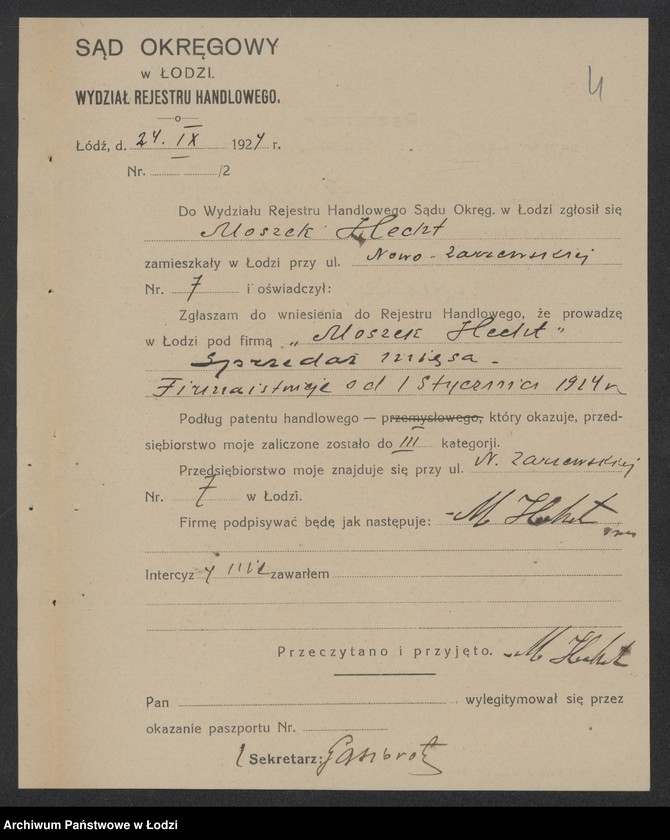 SĄD OKRĘGOWY
w ŁODZI.
WYDZIAŁ REJESTRU HANDLOWEGO.
4
Łódź, d. 24. IX 1924 r.
Nr. /2
Do Wydziału Rejestru Handlowego Sądu Okręg. w Łodzi zgłosił się
Moszek Hecht
zamieszkały w Łodzi przy ul. Nowo-Zarzewskiej
Nr. 7 i oświadczył:
Zgłaszam do wniesienia do Rejestru Handlowego, że prowadzę
w Łodzi pod firmą „Moszek Hecht"
Sprzedaż mięsa -
Firma istnieje od 1 Stycznia 1914 r.
Podług patentu handlowego — przemysłowego, który okazuje, przed-
siębiorstwo moje zaliczone zostało do III kategorji.
Przedsiębiorstwo moje znajduje się przy ul. N. Zarzewskiej
Nr. 7 w Łodzi.
Firmę podpisywać będę jak następuje: - M Hekt
Intercyzy nie zawarłem
Przeczytano i przyjęto. - M Hekt
Pan , wylegitymował się przez
okazanie paszportu Nr.
Sekretarz:
Archiwum Państwowe w Łodzi